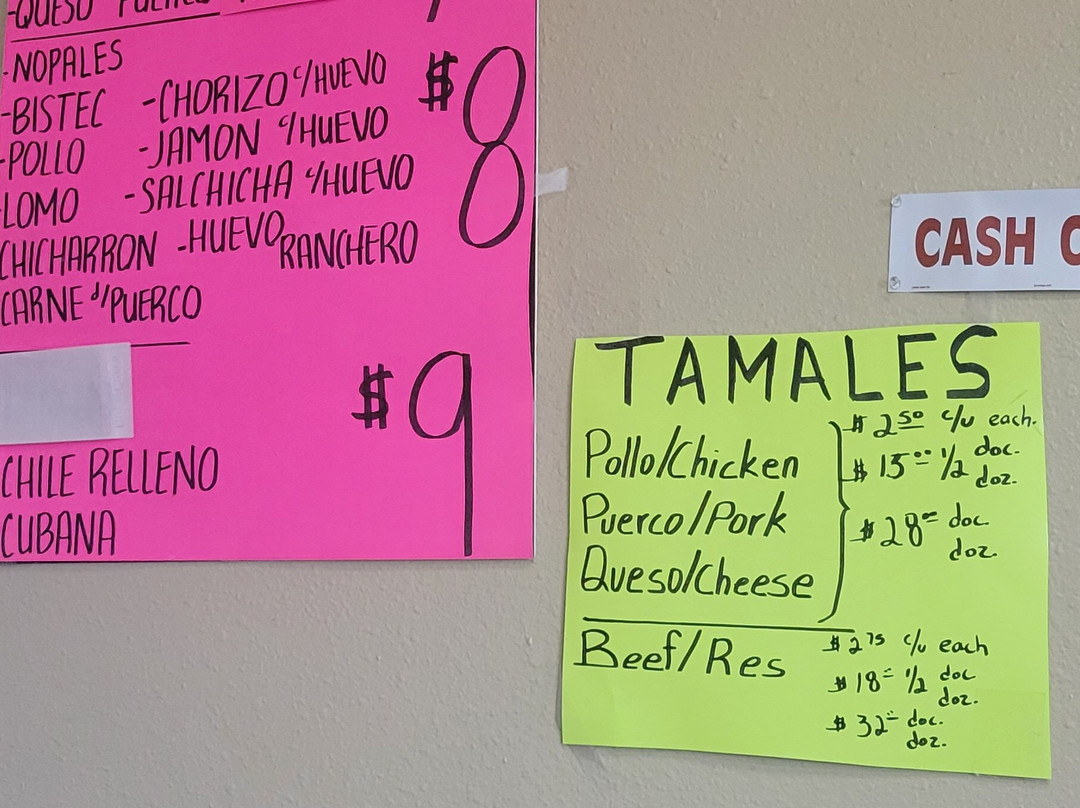 -QUESO
-NOPALES
-BISTEC -CHORIZO c/HUEVO $8
-POLLO -JAMON c/HUEVO
LOMO -SALCHICHA c/HUEVO
CHICHARRON -HUEVO RANCHERO
CARNE d/PUERCO
$9
CHILE RELLENO
CUBANA
CASH
TAMALES
Pollo/Chicken
Puerco/Pork
Queso/Cheese
$2.50 c/u each.
$15.00 1/2 doc.
doz.
$28= doc.
doz.
Beef/Res
$2.75 c/u each
$18= 1/2 doc
doz.
$32= doc.
doz.